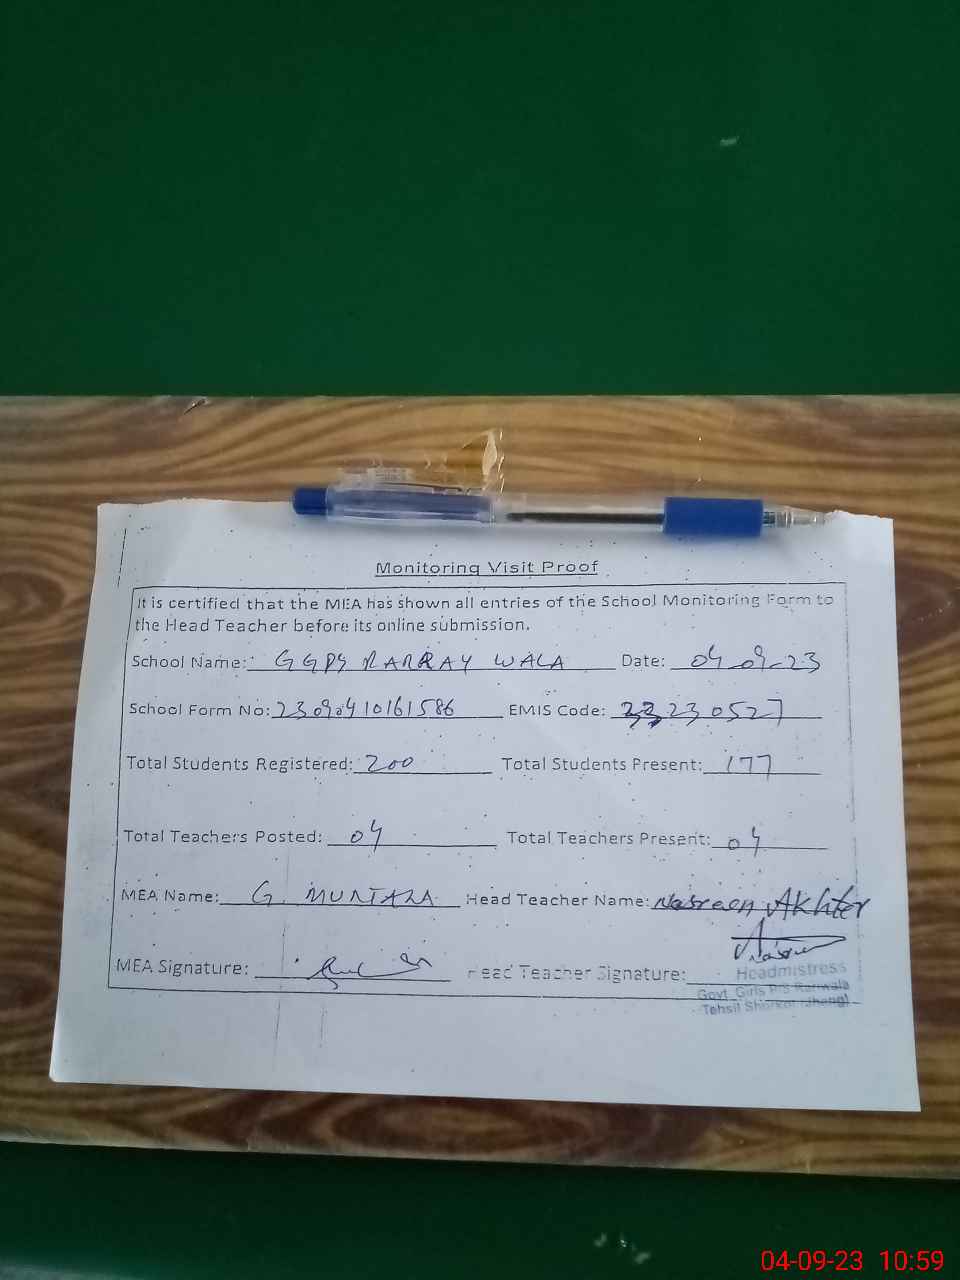 Monitoring Visit Proof
It is certified that the MEA has shown all entries of the School Monitoring Form to
the Head Teacher before its online submission.
School Name: GGPS RARRAY WALA Date: 04-09-23
School Form No: 23090410161586 EMIS Code: 33230527
Total Students Registered: 200 Total Students Present: 177
Total Teachers Posted: 04 Total Teachers Present: 04
MEA Name: G. MURTAZA Head Teacher Name: Nasreen Akhter
MEA Signature: Head Teacher Signature:
Headmistress
Govt. Girls P/S Rariwala
Tehsil Shorkot (Jhang)
04-09-23 10:59